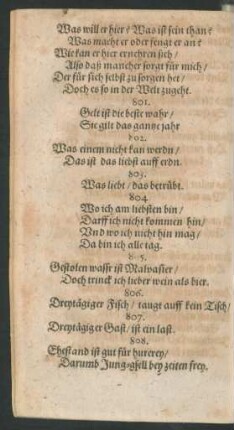 Was will er hier? Was ist sein than?
Was macht er oder fengt er an?
Wie kan er hier ernehren sich/
Also daß mancher sorgt für mich/
Der für sich selbst zu sorgen het/
Doch es so in der Welt zugeht.
801.
Gelt ist die beste wahr/
Sie gilt das gantze jahr
802.
Was einem nicht kan werdn/
Das ist das liebst auff erdn.
803.
Was liebt/ das betrübt.
804.
Wo ich am liebsten bin/
Darff ich nicht kommen hin/
Vnd wo ich nicht hin mag/
Da bin ich alle tag.
805.
Gestolen wassr ist Malvasier/
Doch trinck ich lieber wein als bier.
806.
Dreytägiger Fisch/ taugt auff kein Tisch/
807.
Dreytägiger Gast/ ist ein last.
808.
Ehestand ist gut für hurerey/
Darumb Jungگsell bey zeiten frey.